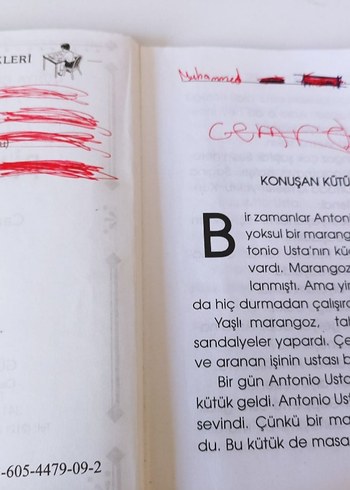 KLERİ
-605-4479-09-2
Muhammed
KONUŞAN KÜTÜ
Bir zamanlar Antoni
yoksul bir marang
tonio Usta'nın küç
vardı. Marangoz
lanmıştı. Ama yir
da hiç durmadan çalışırd
Yaşlı marangoz, tal
sandalyeler yapardı. Çe
ve aranan işinin ustası b
Bir gün Antonio Usta
kütük geldi. Antonio Ust
sevindi. Çünkü bir ma
du. Bu kütük de masa